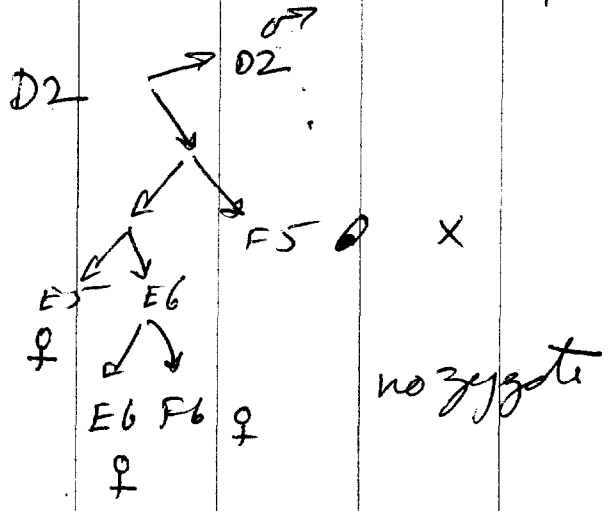 ♂
D2 D2
F5 X
E5 E6
♀
no zygote
E6 F6 ♀
♀